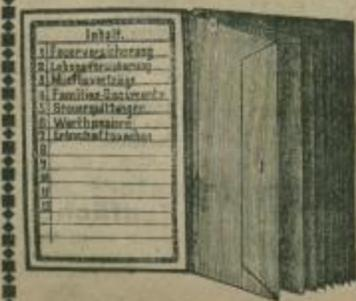 Inhalt.
1 Feuerversicherung
2 Lebensversicherung
3 Miethsverträge
4 Familien-Documente
5 Steuerquittungen
6 Werthpapiere
7 Erbschaftssachen
8
9
10
11
12